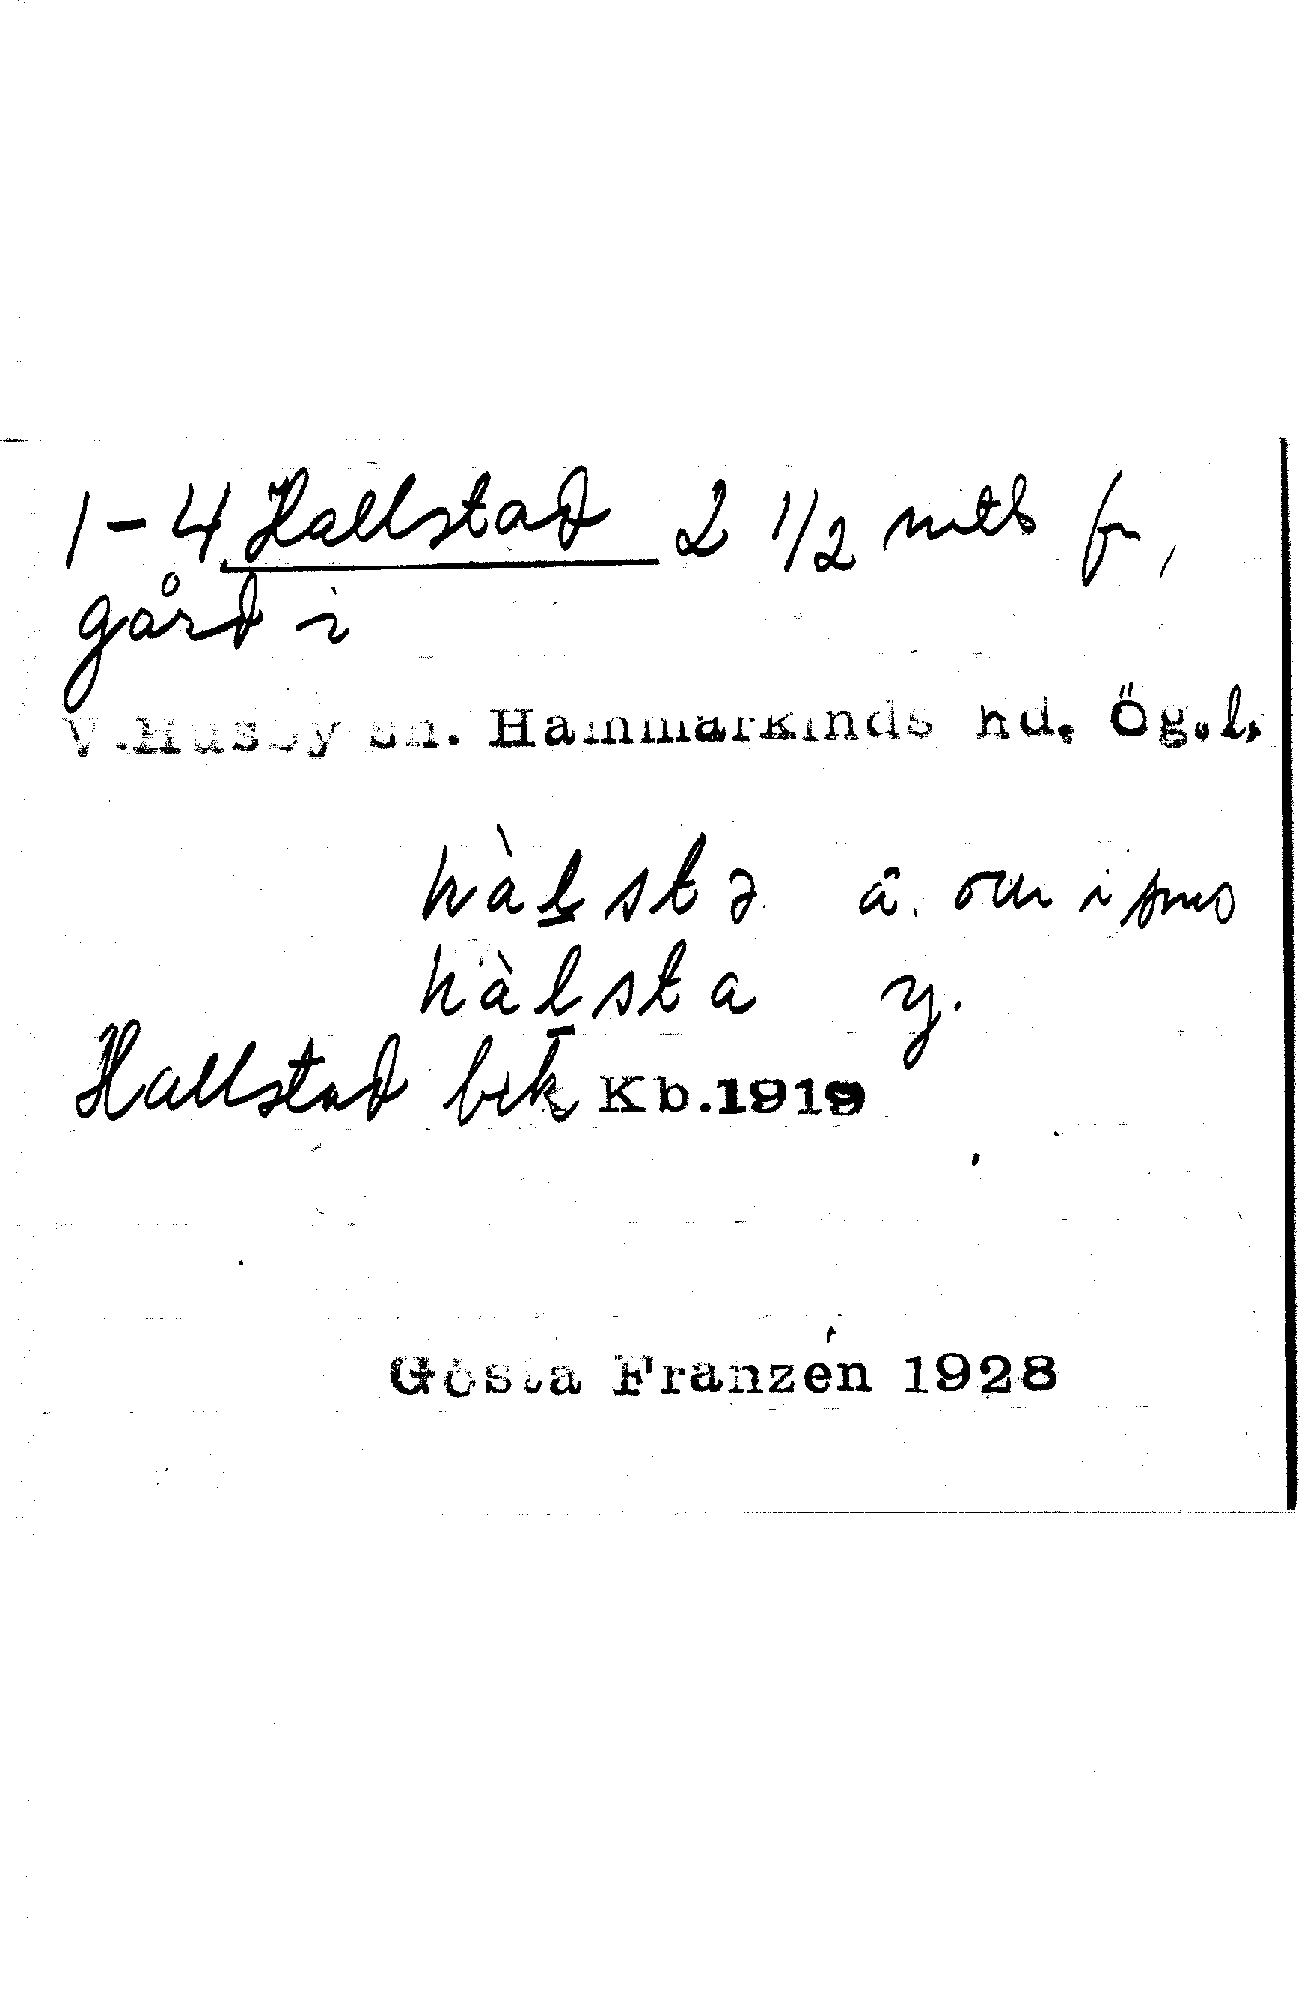 1-4 Hallstad 2 1/2 mtl fr,
gård i
V.Husby sn. Hammarkinds hd. Ög.l.
hàlstə ä. om i
hàlsta y.
Hallstad bek Kb.1919
Gösta Franzén 1928